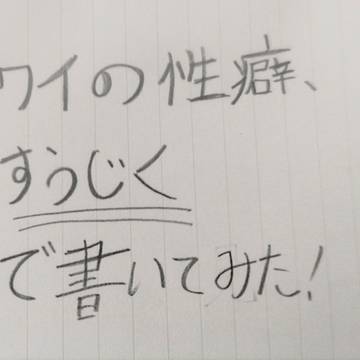 ワイの性癖、
すうじく
で書いてみた!